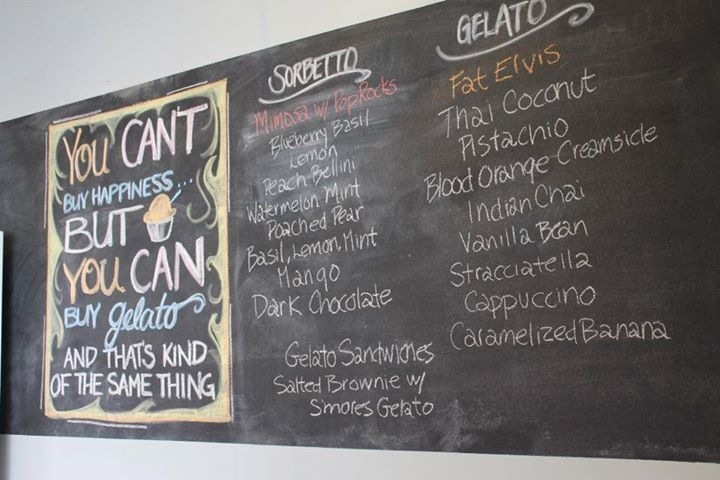 YOU CAN'T
BUY HAPPINESS...
BUT
YOU CAN
BUY gelato
AND THAT'S KIND
OF THE SAME THING
SORBETTO
Mimosa w/ Pop Rocks
Blueberry Basil
Lemon
Peach Bellini
Watermelon Mint
Poached Pear
Basil, Lemon, Mint
Mango
Dark Chocolate
Gelato Sandwiches
Salted Brownie w/
S'mores Gelato
GELATO
Fat Elvis
Thai Coconut
Pistachio
Blood Orange Creamsicle
Indian Chai
Vanilla Bean
Stracciatella
Cappuccino
Caramelized Banana